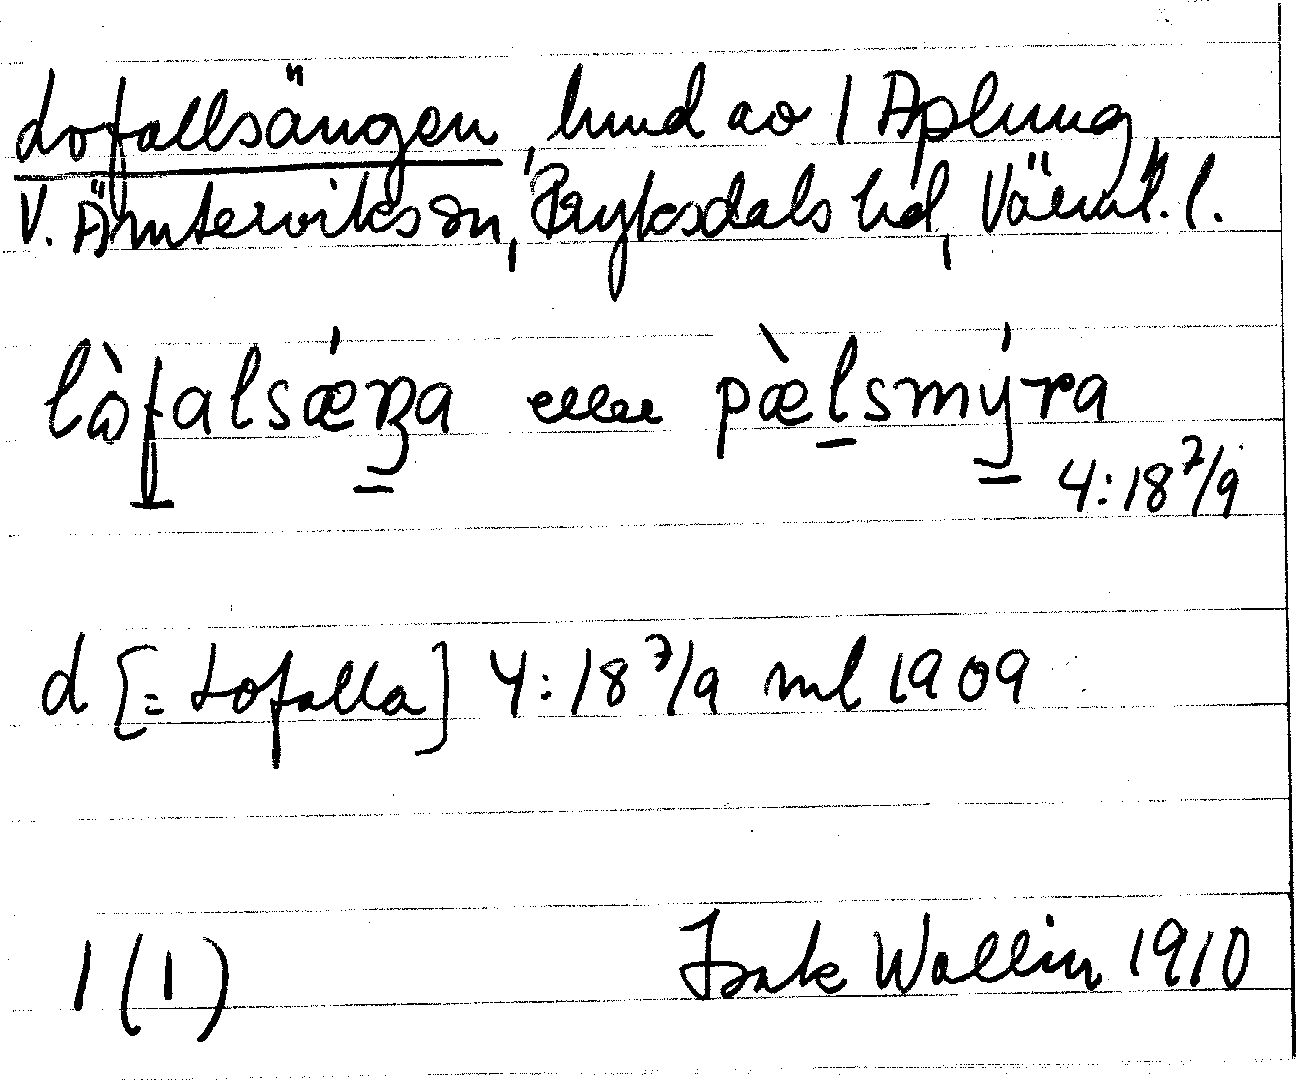 Lofallsängen, hmd av 1 Aplung,
V. Ämterviks sn, Fryksdals hd, Värml. l.
lòfalsǽŋa eller pæ̀lsmýra
4:18 7/9
d [= Lofalla] 4:18 7/9 ml 1909
1 (1) Isak Wallin 1910